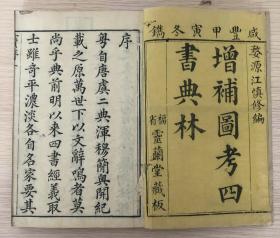 咸豐甲寅冬鐫
婺源江慎修編
增補圖考四
書典林
靈蘭堂藏板
序
粤自唐虞二典渾穆簡奧開紀
載之原萬世下以文辭鳴者莫
尚乎典前明以來四書經義取
士雖奇平濃淡各自名家要其